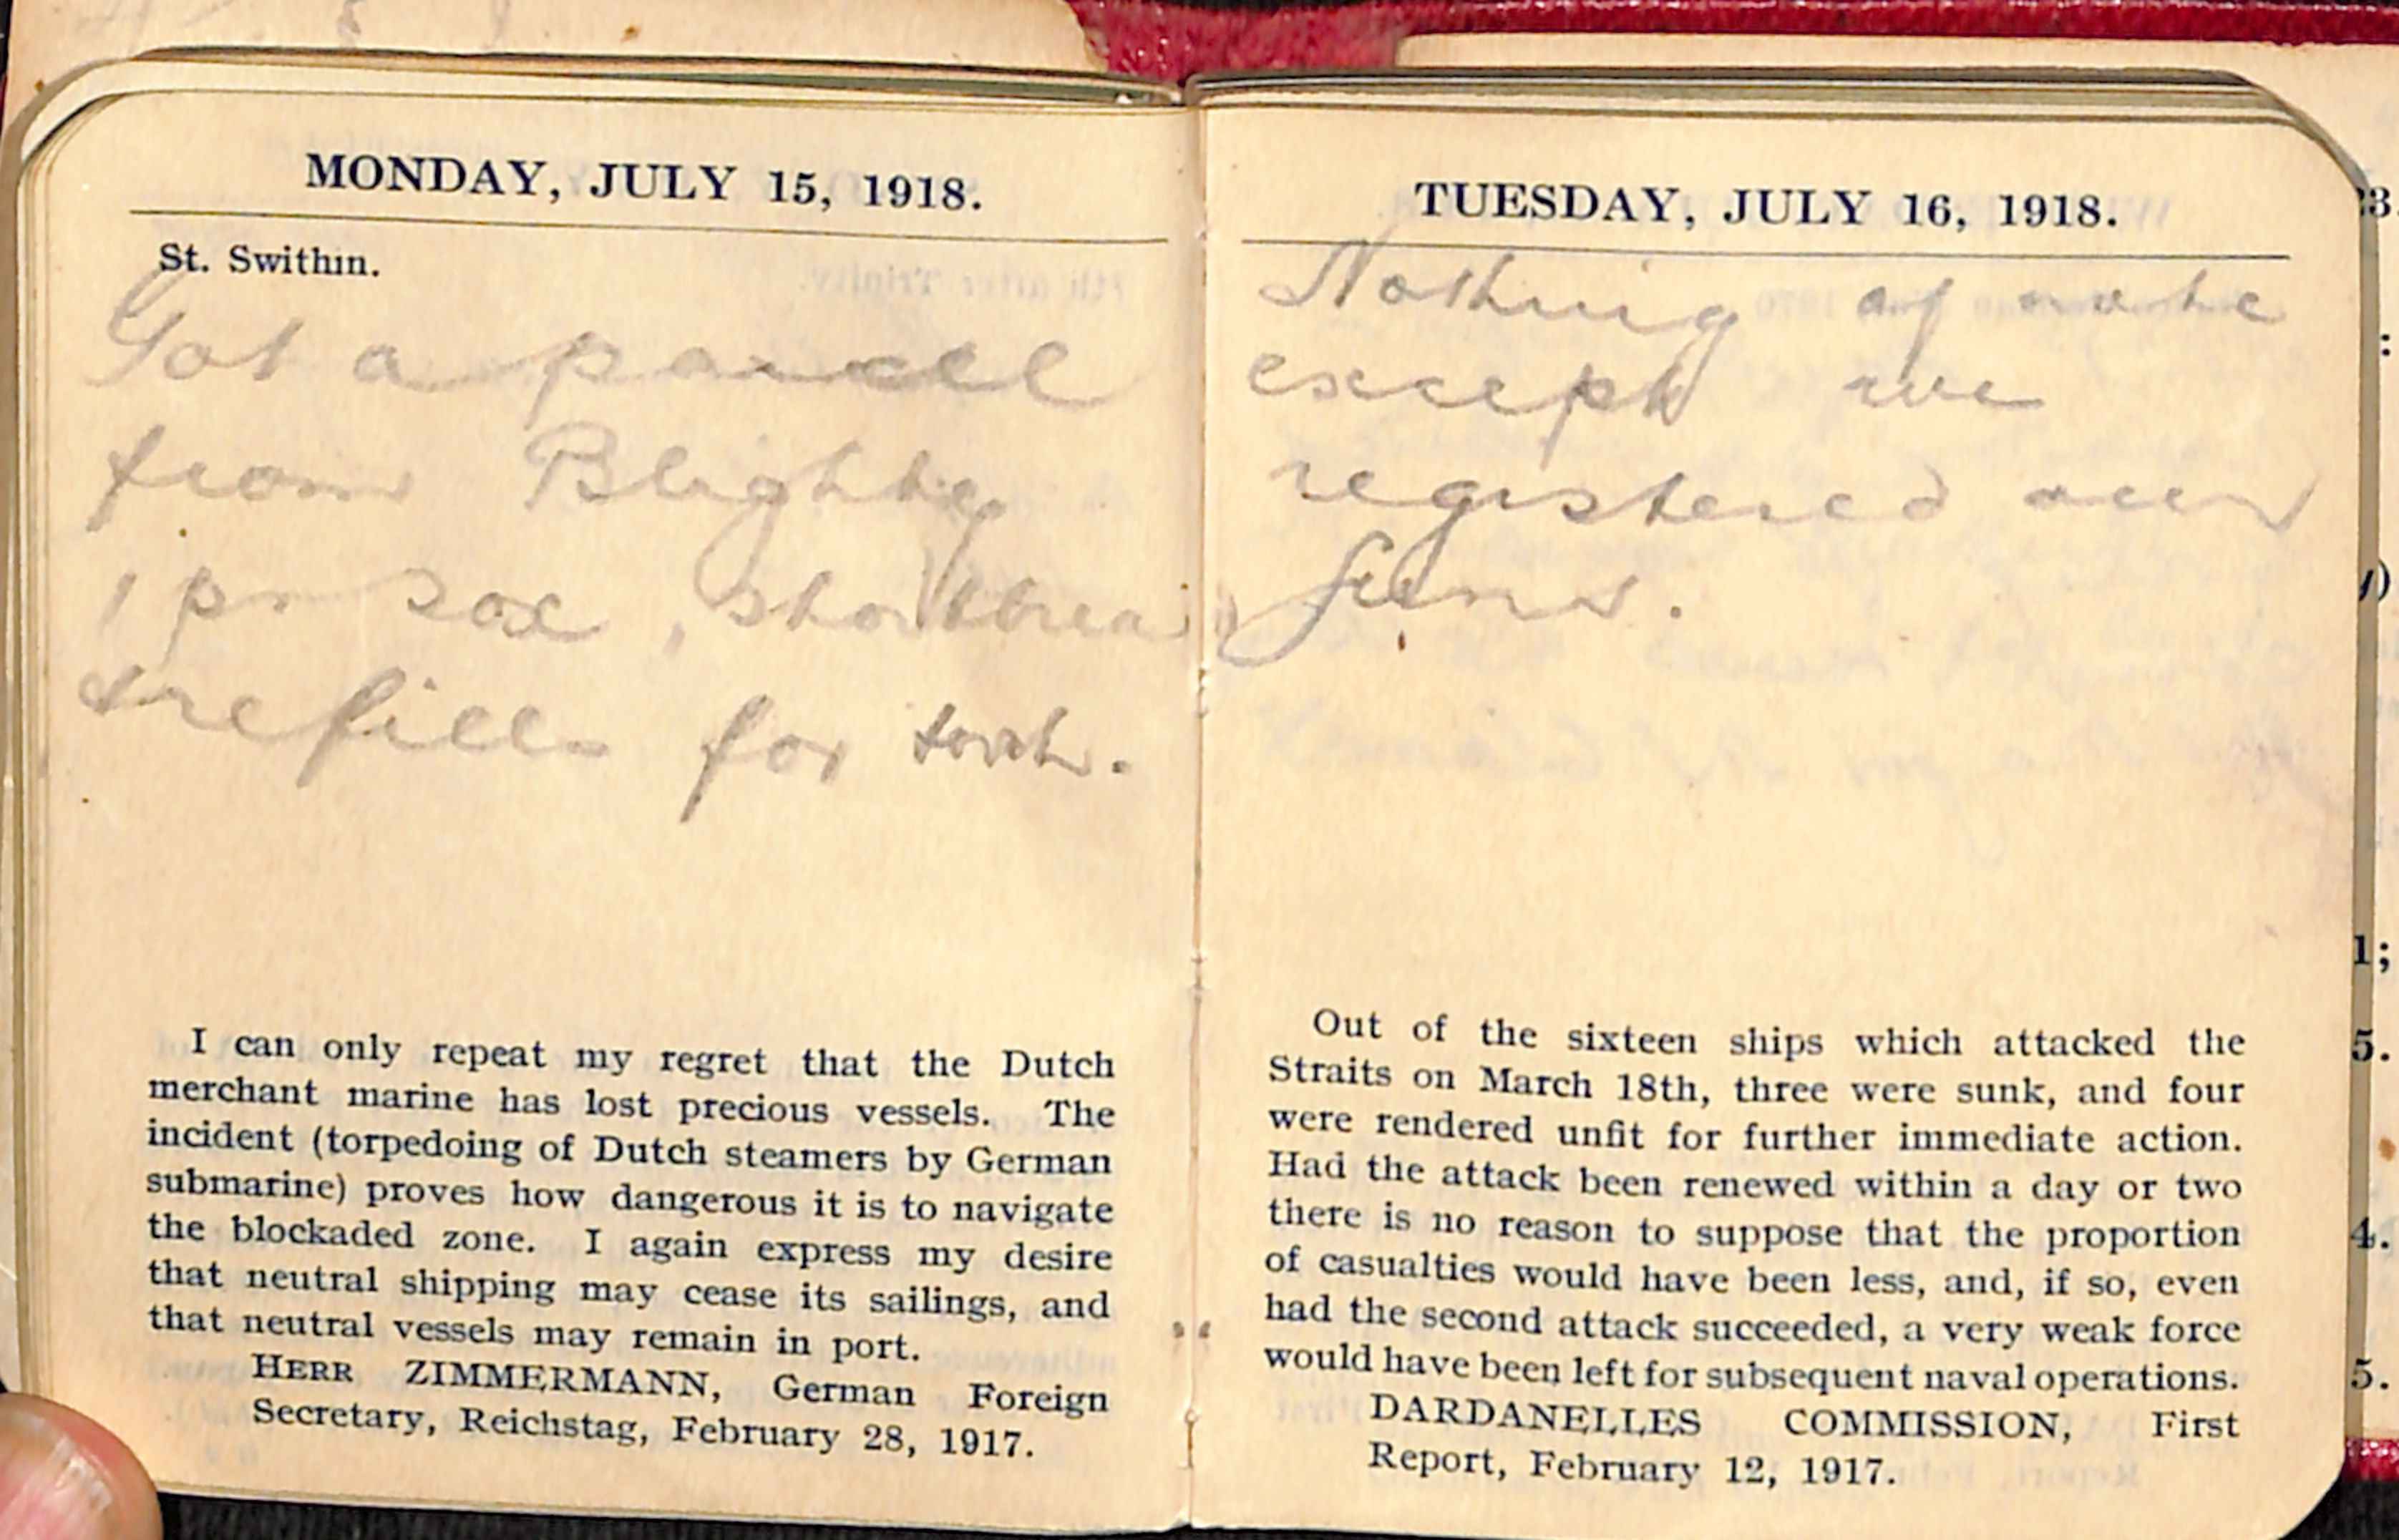 MONDAY, JULY 15, 1918.
St. Swithin.
Got a parcel
from Blighty
1 pr sox, shortbread
& refills for torch.
I can only repeat my regret that the Dutch
merchant marine has lost precious vessels. The
incident (torpedoing of Dutch steamers by German
submarine) proves how dangerous it is to navigate
the blockaded zone. I again express my desire
that neutral shipping may cease its sailings, and
that neutral vessels may remain in port.
HERR ZIMMERMANN, German Foreign
Secretary, Reichstag, February 28, 1917.
TUESDAY, JULY 16, 1918.
Nothing of note
except we
registered our
guns.
Out of the sixteen ships which attacked the
Straits on March 18th, three were sunk, and four
were rendered unfit for further immediate action.
Had the attack been renewed within a day or two
there is no reason to suppose that the proportion
of casualties would have been less, and, if so, even
had the second attack succeeded, a very weak force
would have been left for subsequent naval operations.
DARDANELLES COMMISSION, First
Report, February 12, 1917.